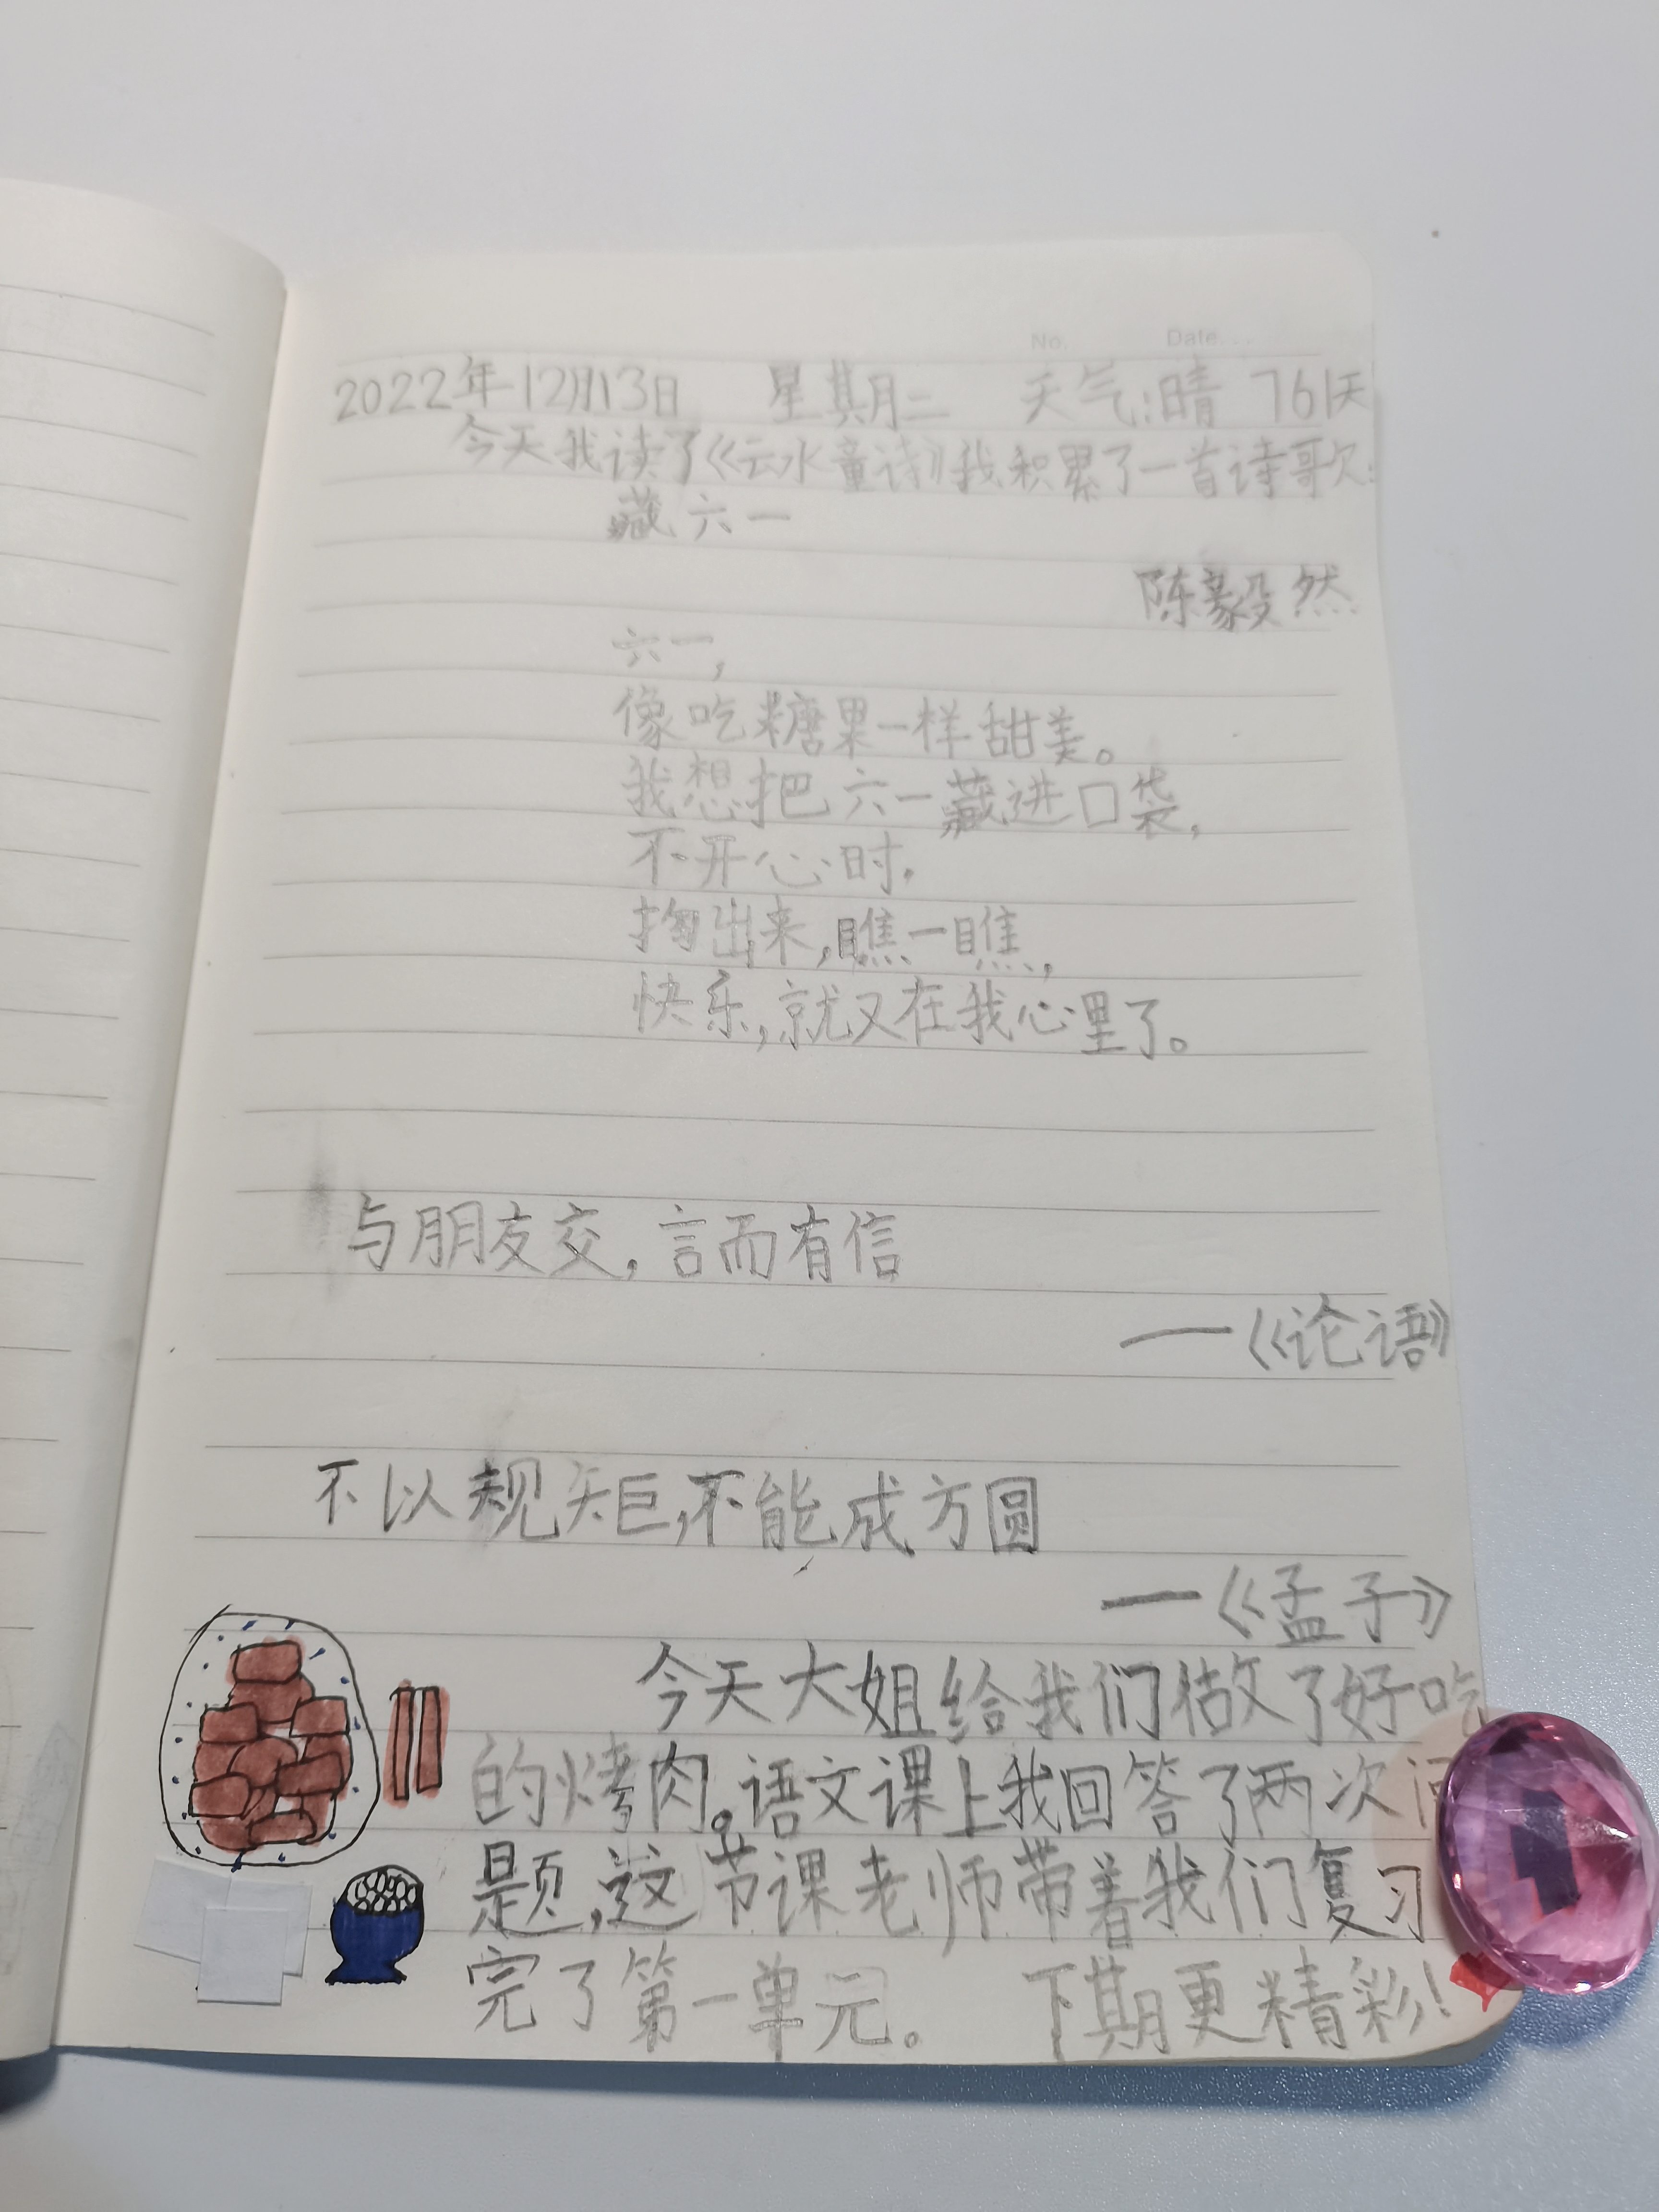 No. Date
2022年12月13日 星期二 天气:晴 761天
今天我读了《云水童诗》我积累了一首诗歌:
藏六一
陈毅然
六一,
像吃糖果一样甜美。
我想把六一藏进口袋,
不开心时,
掏出来,瞧一瞧,
快乐,就又在我心里了。
与朋友交,言而有信
——《论语》
不以规矩,不能成方圆
——《孟子》
今天大姐给我们做了好吃
的烤肉。语文课上我回答了两次问
题,这节课老师带着我们复习
完了第一单元。 下期更精彩!